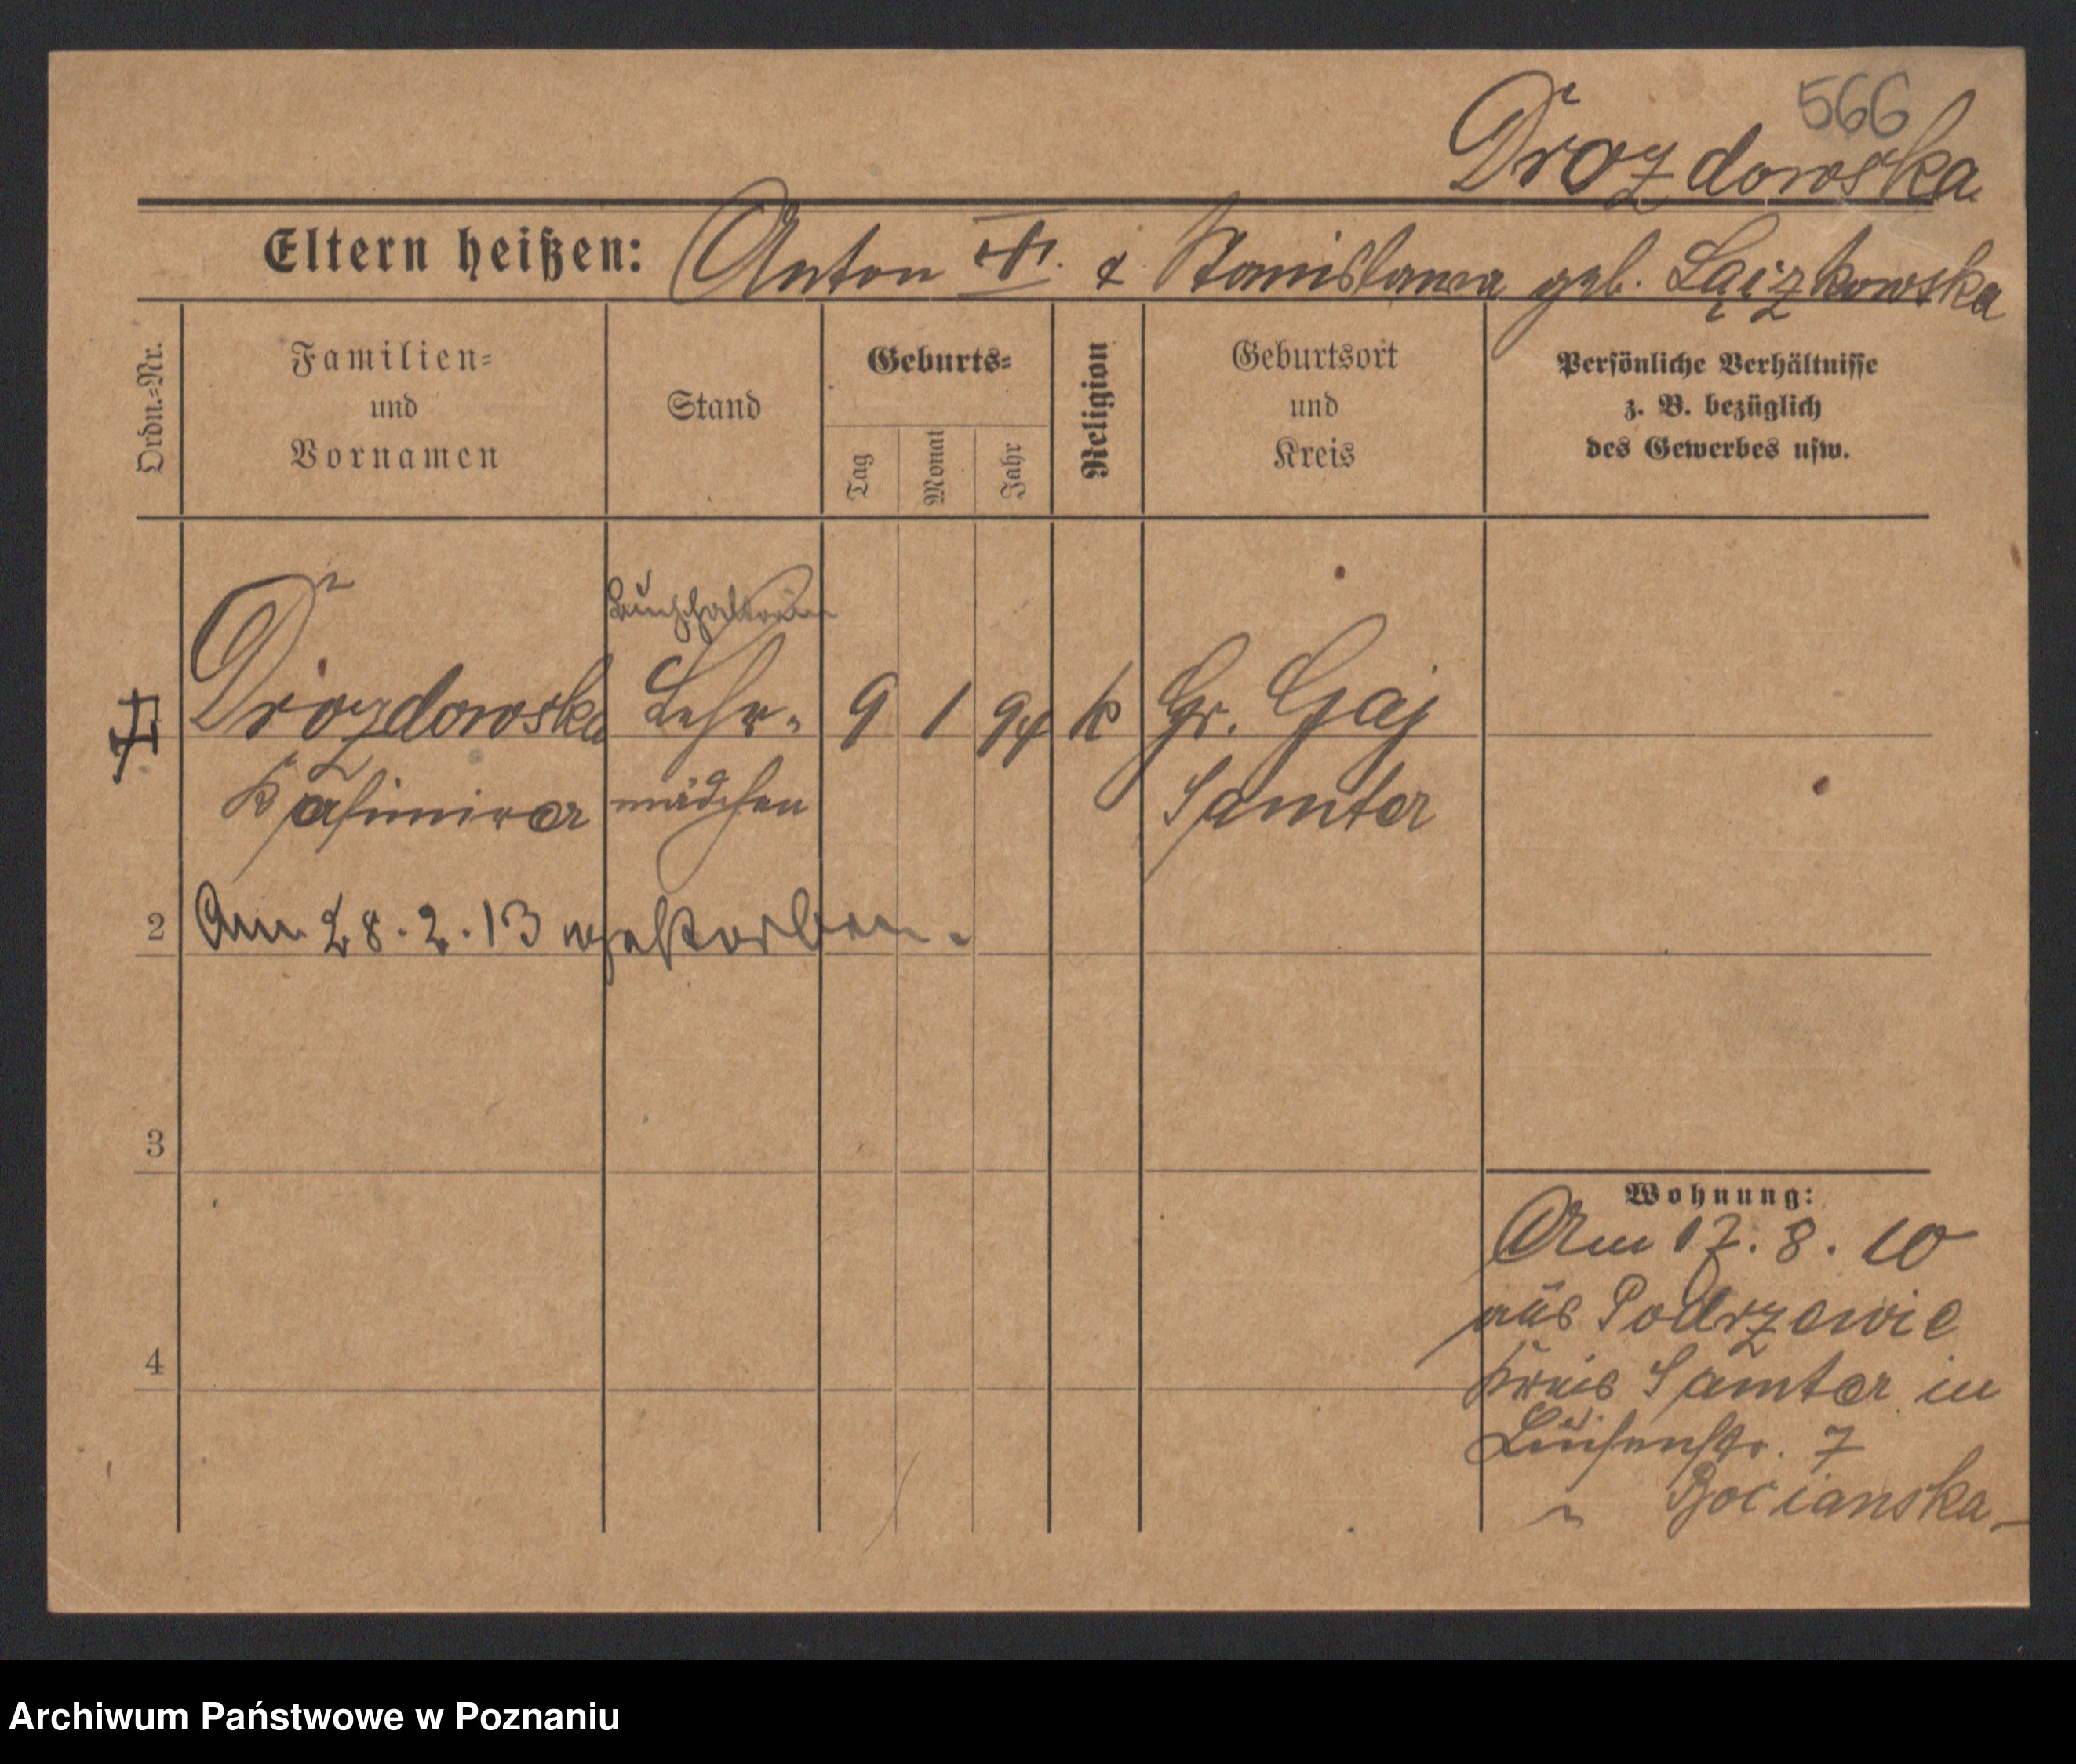 566
Drozdowska
Eltern heißen: Anton & Stanislawa geb.
Ordn.=Nr.
Familien=
und
Vornamen
Stand
Geburts=
Tag
Monat
Jahr
Religion
Geburtsort
und
Kreis
Persönliche Verhältnisse
z. B. bezüglich
des Gewerbes usw.
Buchhalterin
Drozdowska Lehr= 9 1 94 k Gr. Gaj
mädchen Samter
2 Am 28.2.13 gestorben.
3
Wohnung:
Am 17.8.10
aus Podrzewie
4
Kreis Samter in
Luisenstr. 7
Bocianska
Archiwum Państwowe w Poznaniu